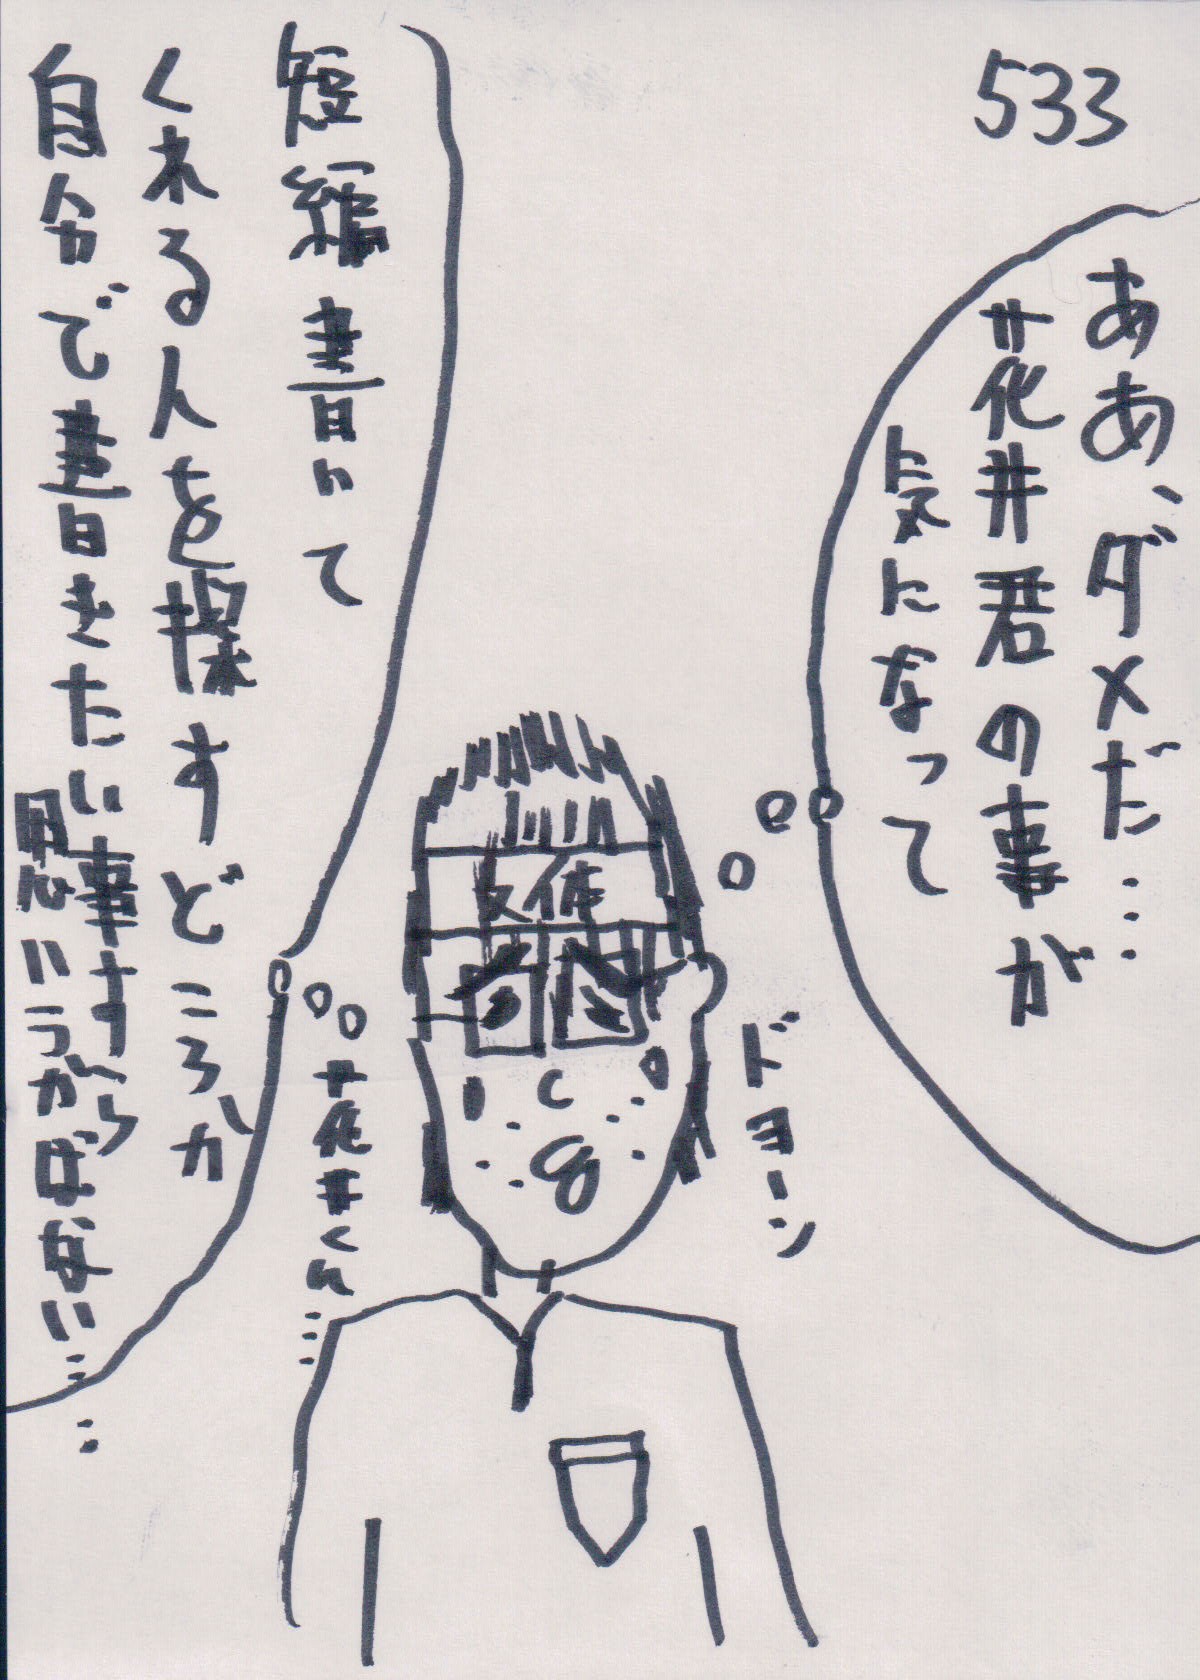 533
ああ、ダメだ…
花井君の事が
気になって
ドヨーン
短編書いて
くれる人を探すどころか
自分で書きたい事すら
思いうかばない……
花井くん…